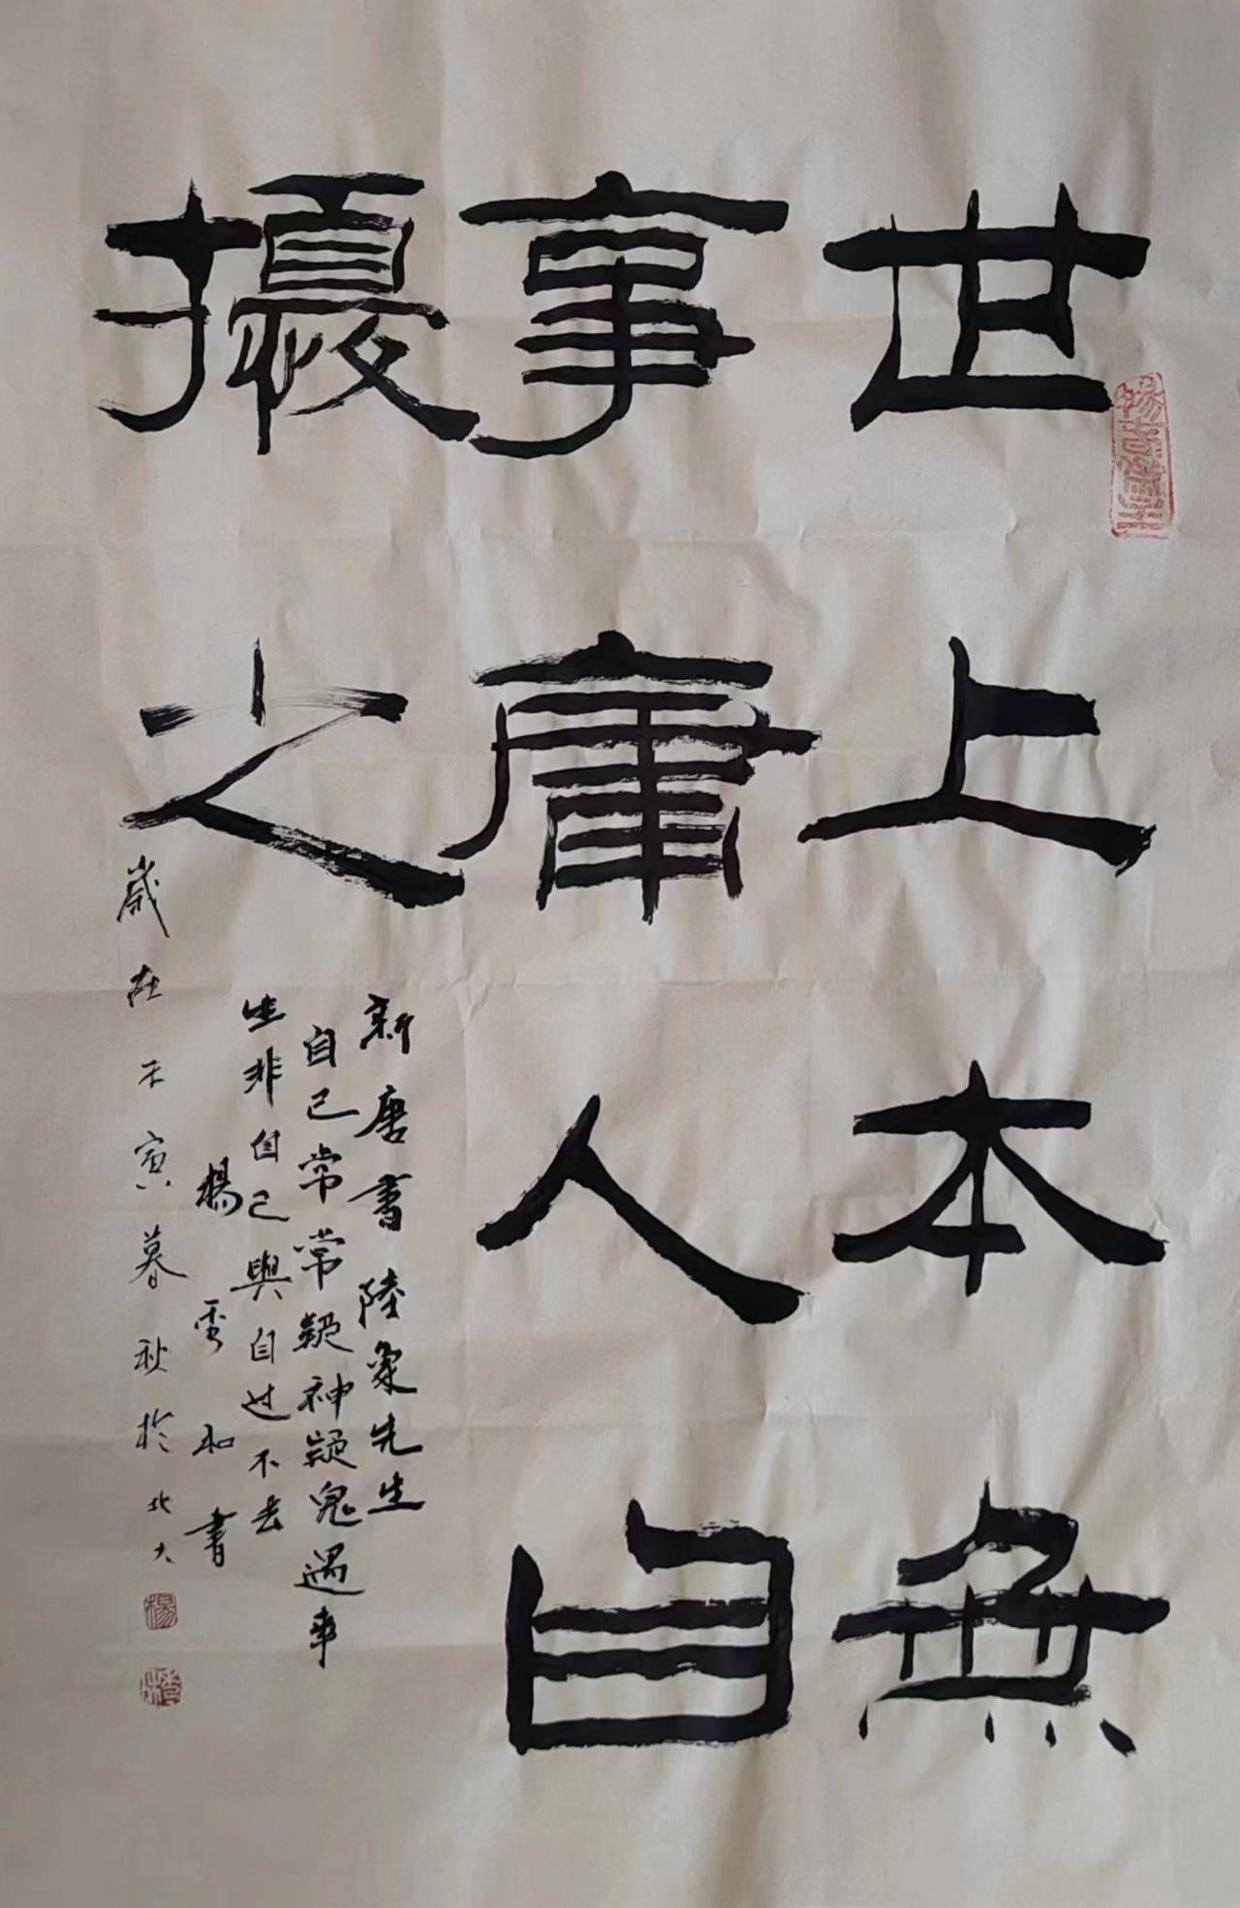 世上本無
事庸人自
擾之
新唐書陸象先生
自己常常疑神疑鬼遇事
生非自己與自过不去
楊雲和書
歲在壬寅暮秋於北大
楊